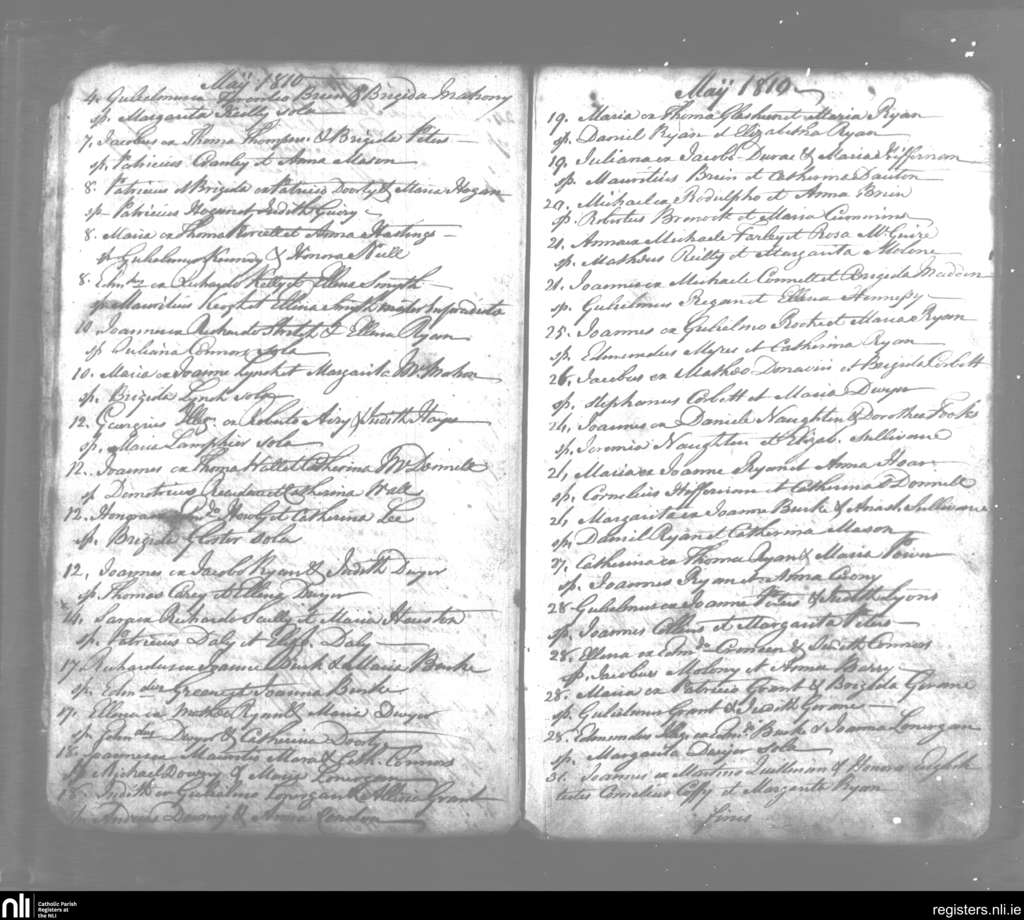 Maÿ 1810
4. Gulielmus ex Terentio Bruin & Brigida Mahony
sp. Margarita Reilly sola
7, Jacobus ex Thoma Thompson & Brigida Peters
sp. Patricius Cauley et Anna Mason
8. Patricius et Brigida ex Patricio Dooly & Maria Hogan
sp Patricius Hogan et Judith Guiry
8. Maria ex Thoma Purcell et Anna Hastings
sp Gulielmus Kennedy & Honora Null
8. Edmdus ex Richardo Kelly et Ellena Smyth
sp Mauritius Keoghe et Ellena Smyth
10 Joannes ex Richardo & Ellena Ryan
sp Juliana Connors sola
10. Maria ex Joanne Lynch et Margarita McMahon
sp. Brigida Lynch sola
12. Georgius Illeg. ex Roberto Airy & Judith Hayes
sp. Maria Lamphier sola
12. Joannes ex Thoma Hallet Catherina McDonnell
sp Demetrius Reardan et Catherina Wall
12. Honora Howly et Catherina Lee
sp. Brigida Glostor Sola
12, Joannes ex Jacobo Ryan & Judith Dwyer
sp Thomas Carey et Ellena Dwyer
14. Sara ex Richardo Scully et Maria Houston
sp. Patricius Daly et Eliz. Daly
17. Richardus ex Joanne Burk & Maria Burke
sp. Edmdus Greane et Joanna Burke
17. Ellena ex Matheo Ryan & Maria Dwyer
sp Dwyer & Catherina Dooly
18. Joannes ex Mauritio Mara & Connors
sp Michael Downy & Maria Lonergan
18. Judith ex Gulielmo & Ellena Grant
sp. Andreas Downy & Anna Condon
Maÿ 1810
19. Maria ex Thoma Glasheen et Maria Ryan
sp. Daniel Ryan et Elizabetha Ryan
19. Juliana ex Jacobo Durac & Maria Hiffernan
sp. Mauritius Bruin et Catherina Dalton
20. Michael ex Rodulpho et Anna Bruin
sp. Robertus Bronock et Maria Cummins
21. Anna ex Michaele Farley et Rosa McGuire
sp. Matheus Reilly et Margarita Molone
21. Joannes ex Michaele Connell et Brigida Madden
sp. Gulielmus Regan et Ellena Hennessy
25. Joannes ex Gulielmo Roche et Maria Ryan
sp. Edmundus Myres et Catherina Ryan
26. Jacobus ex Matheo Donavin et Brigida Corbett
sp. Stephanus Corbett et Maria Dwyer
24, Joannes ex Daniele Naughten & Dorothea Fooks
sp. Jeremia Naughten et Elizab. Sullivane
24, Maria ex Joanne Ryan et Anna Hoar
sp, Cornelius Hiffernan et Catherina O Donnell
24, Margarita ex Joanne Burke & Sullivane
sp. Daniel Ryan et Catherina Mason
27. Catherina ex Thoma Ryan & Maria Power
sp. Joannes Ryan et Anna Crony
28 Gulielmus ex Joanne Peters & Judith Lyons
sp. Joannes Collins et Margarita Peters
28. Ellena ex Edmdo Croneen & Judith Connors
sp. Jacobus Molony et Anna Barry
28. Maria ex Patricio Grant & Brigida Girane
sp. Gulielmus Grant & Judith Girane
28. Edmundus Illeg. ex Edmdo Burk & Joanna Lonergan
sp. Margarita Dwyer Sola
31. Joannes ex Martino Quillinan & Honora English
testes Cornelius Coffy et Margarita Ryan
finis
nli
Catholic Parish
Registers at
the NLI
registers.nli.ie